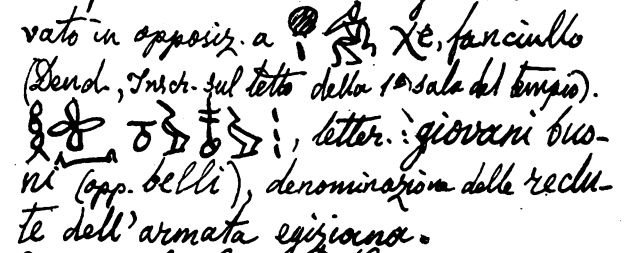 vato in opposiz. a χe, fanciullo
(Dend., Inscr. sul tetto della 1ª sala del tempio).
, letter.: giovani buo-
ni (opp. belli), denominazione delle reclu-
te dell'armata egiziana.